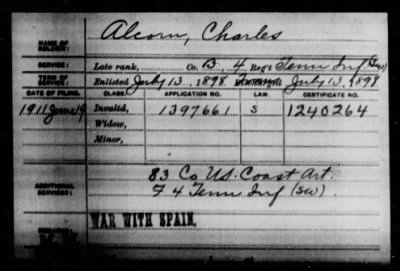 Alcorn, Charles
NAME OF SOLDIER:
SERVICE: Late rank, Co. B. 4 Reg't Tenn Inf (SW)
TERM OF SERVICE: Enlisted July 13, 1898 July 13, 1898
DATE OF FILING. CLASS. APPLICATION NO. LAW. CERTIFICATE NO.
1911 June 19 Invalid, 1397661 S 1240264
Widow,
Minor,
ADDITIONAL SERVICES: 83 Co U.S. Coast Art.
F 4 Tenn Inf (SW)
WAR WITH SPAIN.
REMARKS: